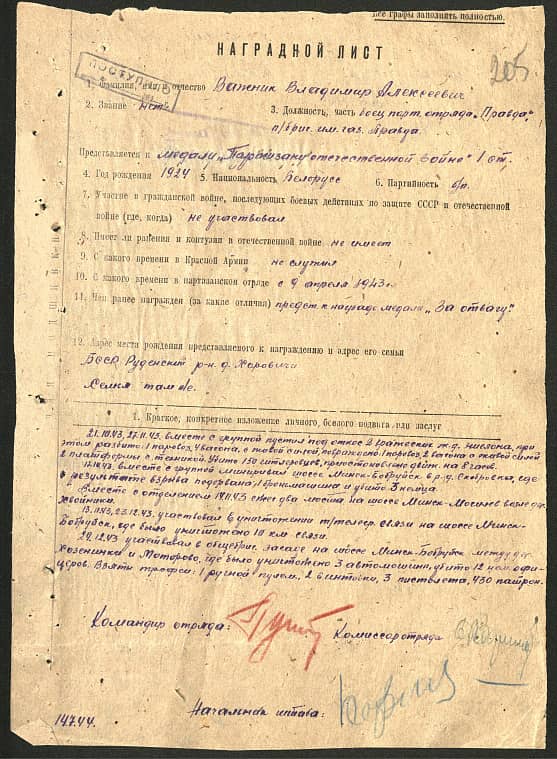 Все графы заполнять полностью.
НАГРАДНОЙ ЛИСТ
205
ПОСТУП
1. Фамилия, имя и отчество Важник Владимир Алексеевич
2. Звание нет
3. Должность, часть боец парт. отряда „Правда"
п/бриг. им. газ. Правда
Представляется к медали „Партизану отечественной войно" 1 ст.
4. Год рождения 1924 5. Национальность Белорусс 6. Партийность б/п.
7. Участие в гражданской войне, последующих боевых действиях по защите СССР и отечественной
войне (где, когда) не участвовал
8. Имеет ли ранения и контузии в отечественной войне не имеет
9. С какого времени в Красной Армии не служил
10. С какого времени в партизанском отряде с 9 апреля 1943 г.
11. Чем ранее награжден (за какие отличия) предст. к награде медали „За отвагу".
12. Адрес места рождения представляемого к награждению и адрес его семьи
БССР Руденский р-н д.
Семья там же.
1. Краткое, конкретное изложение личного, боевого подвига или заслуг
21.10.43, 27.11.43. вместе с группой пустил под откос 2 вражеских ж.д. эшелона, при
этом разбито: 1 паровоз, 4 вагона, с живой силой повреждено 1 паровоз, 2 вагона с живой силой
2 платформы с техникой. Убито 150 гитлеровцев, приостановлено движ. на 8 часов.
вместе с группой минировал шоссе Минск-Бобруйск в р-д. где
в результате взрыва подорвана 1 бронемашина и убито 3 немца.
Вместе с отделением 43 сжег два моста на шоссе Минск-Могилев возле дер.
Хвойники.
23.12.43. участвовал в уничтожении т/телегр. связи на шоссе Минск-
Бобруйск, где было уничтожено 10 км. связи.
29.12.43 участвовал в общебриг. засаде на шоссе Минск-Бобруйск между д.
и Моторово, где было уничтожено 3 автомашины, убито 12 нем. офи-
церов. Взяты трофеи: 1 ручной пулем, 2 винтовки, 3 пистолета, 430 патрон.
Командир отряда:
Комиссар отряда
Начальник штаба:
14.7.44.